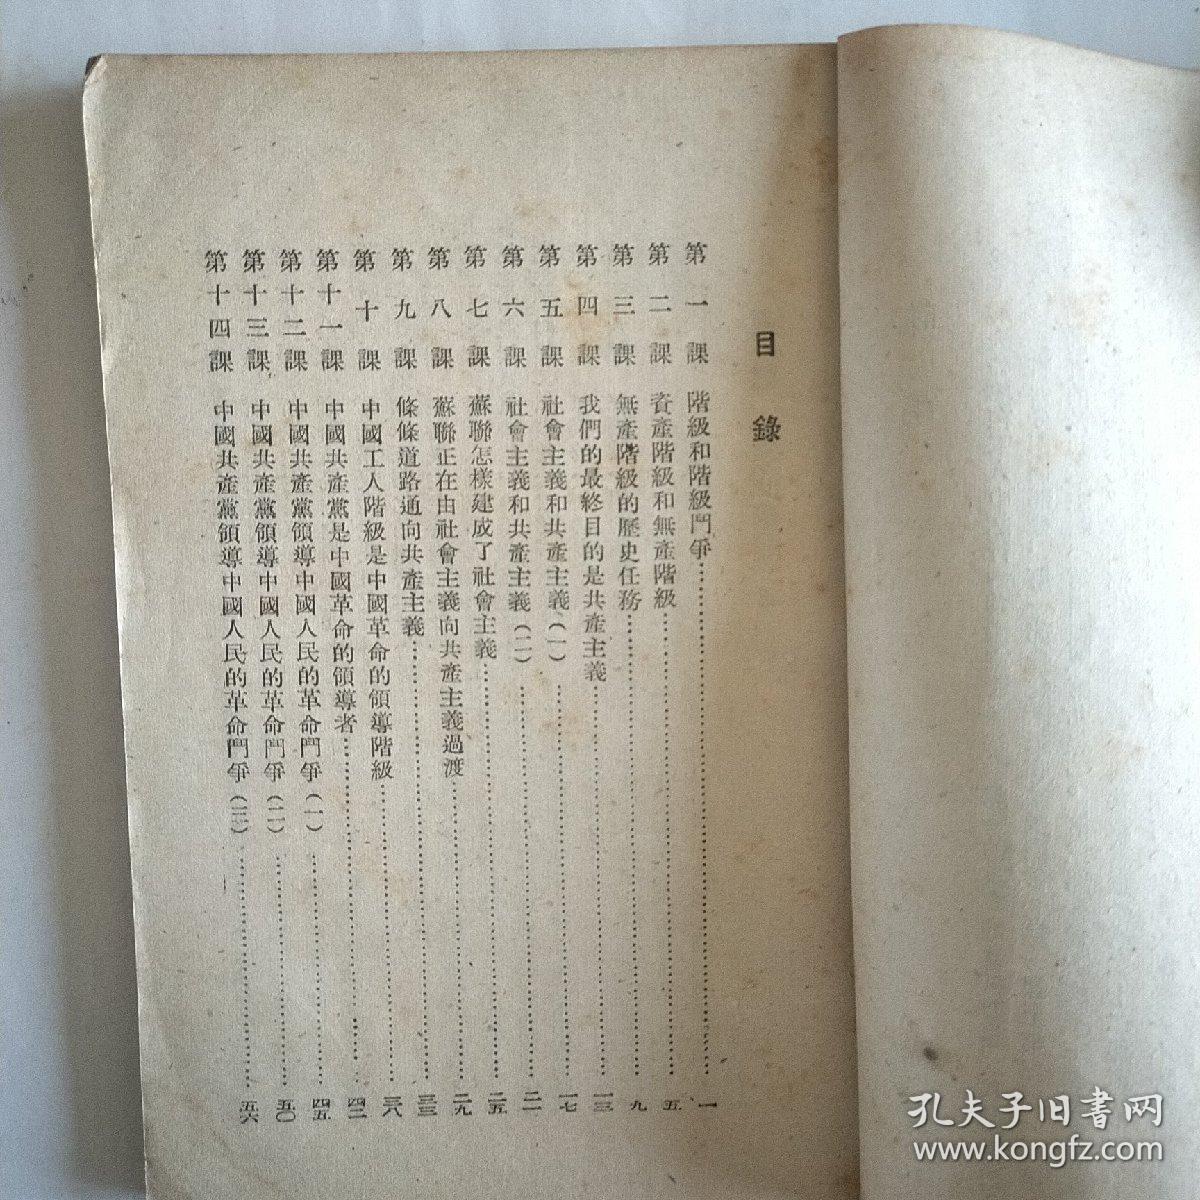 目錄
第一課 階級和階級鬥爭……一
第二課 資產階級和無產階級……五
第三課 無產階級的歷史任務……九
第四課 我們的最終目的是共產主義……一三
第五課 社會主義和共產主義(一)……一七
第六課 社會主義和共產主義(二)……二一
第七課 蘇聯怎樣建成了社會主義……二五
第八課 蘇聯正在由社會主義向共產主義過渡……二九
第九課 條條道路通向共產主義……三三
第十課 中國工人階級是中國革命的領導階級……三八
第十一課 中國共產黨是中國革命的領導者……四二
第十二課 中國共產黨領導中國人民的革命鬥爭(一)……四五
第十三課 中國共產黨領導中國人民的革命鬥爭(二)……五〇
第十四課 中國共產黨領導中國人民的革命鬥爭(三)……五六
孔夫子旧书网
www.kongfz.com